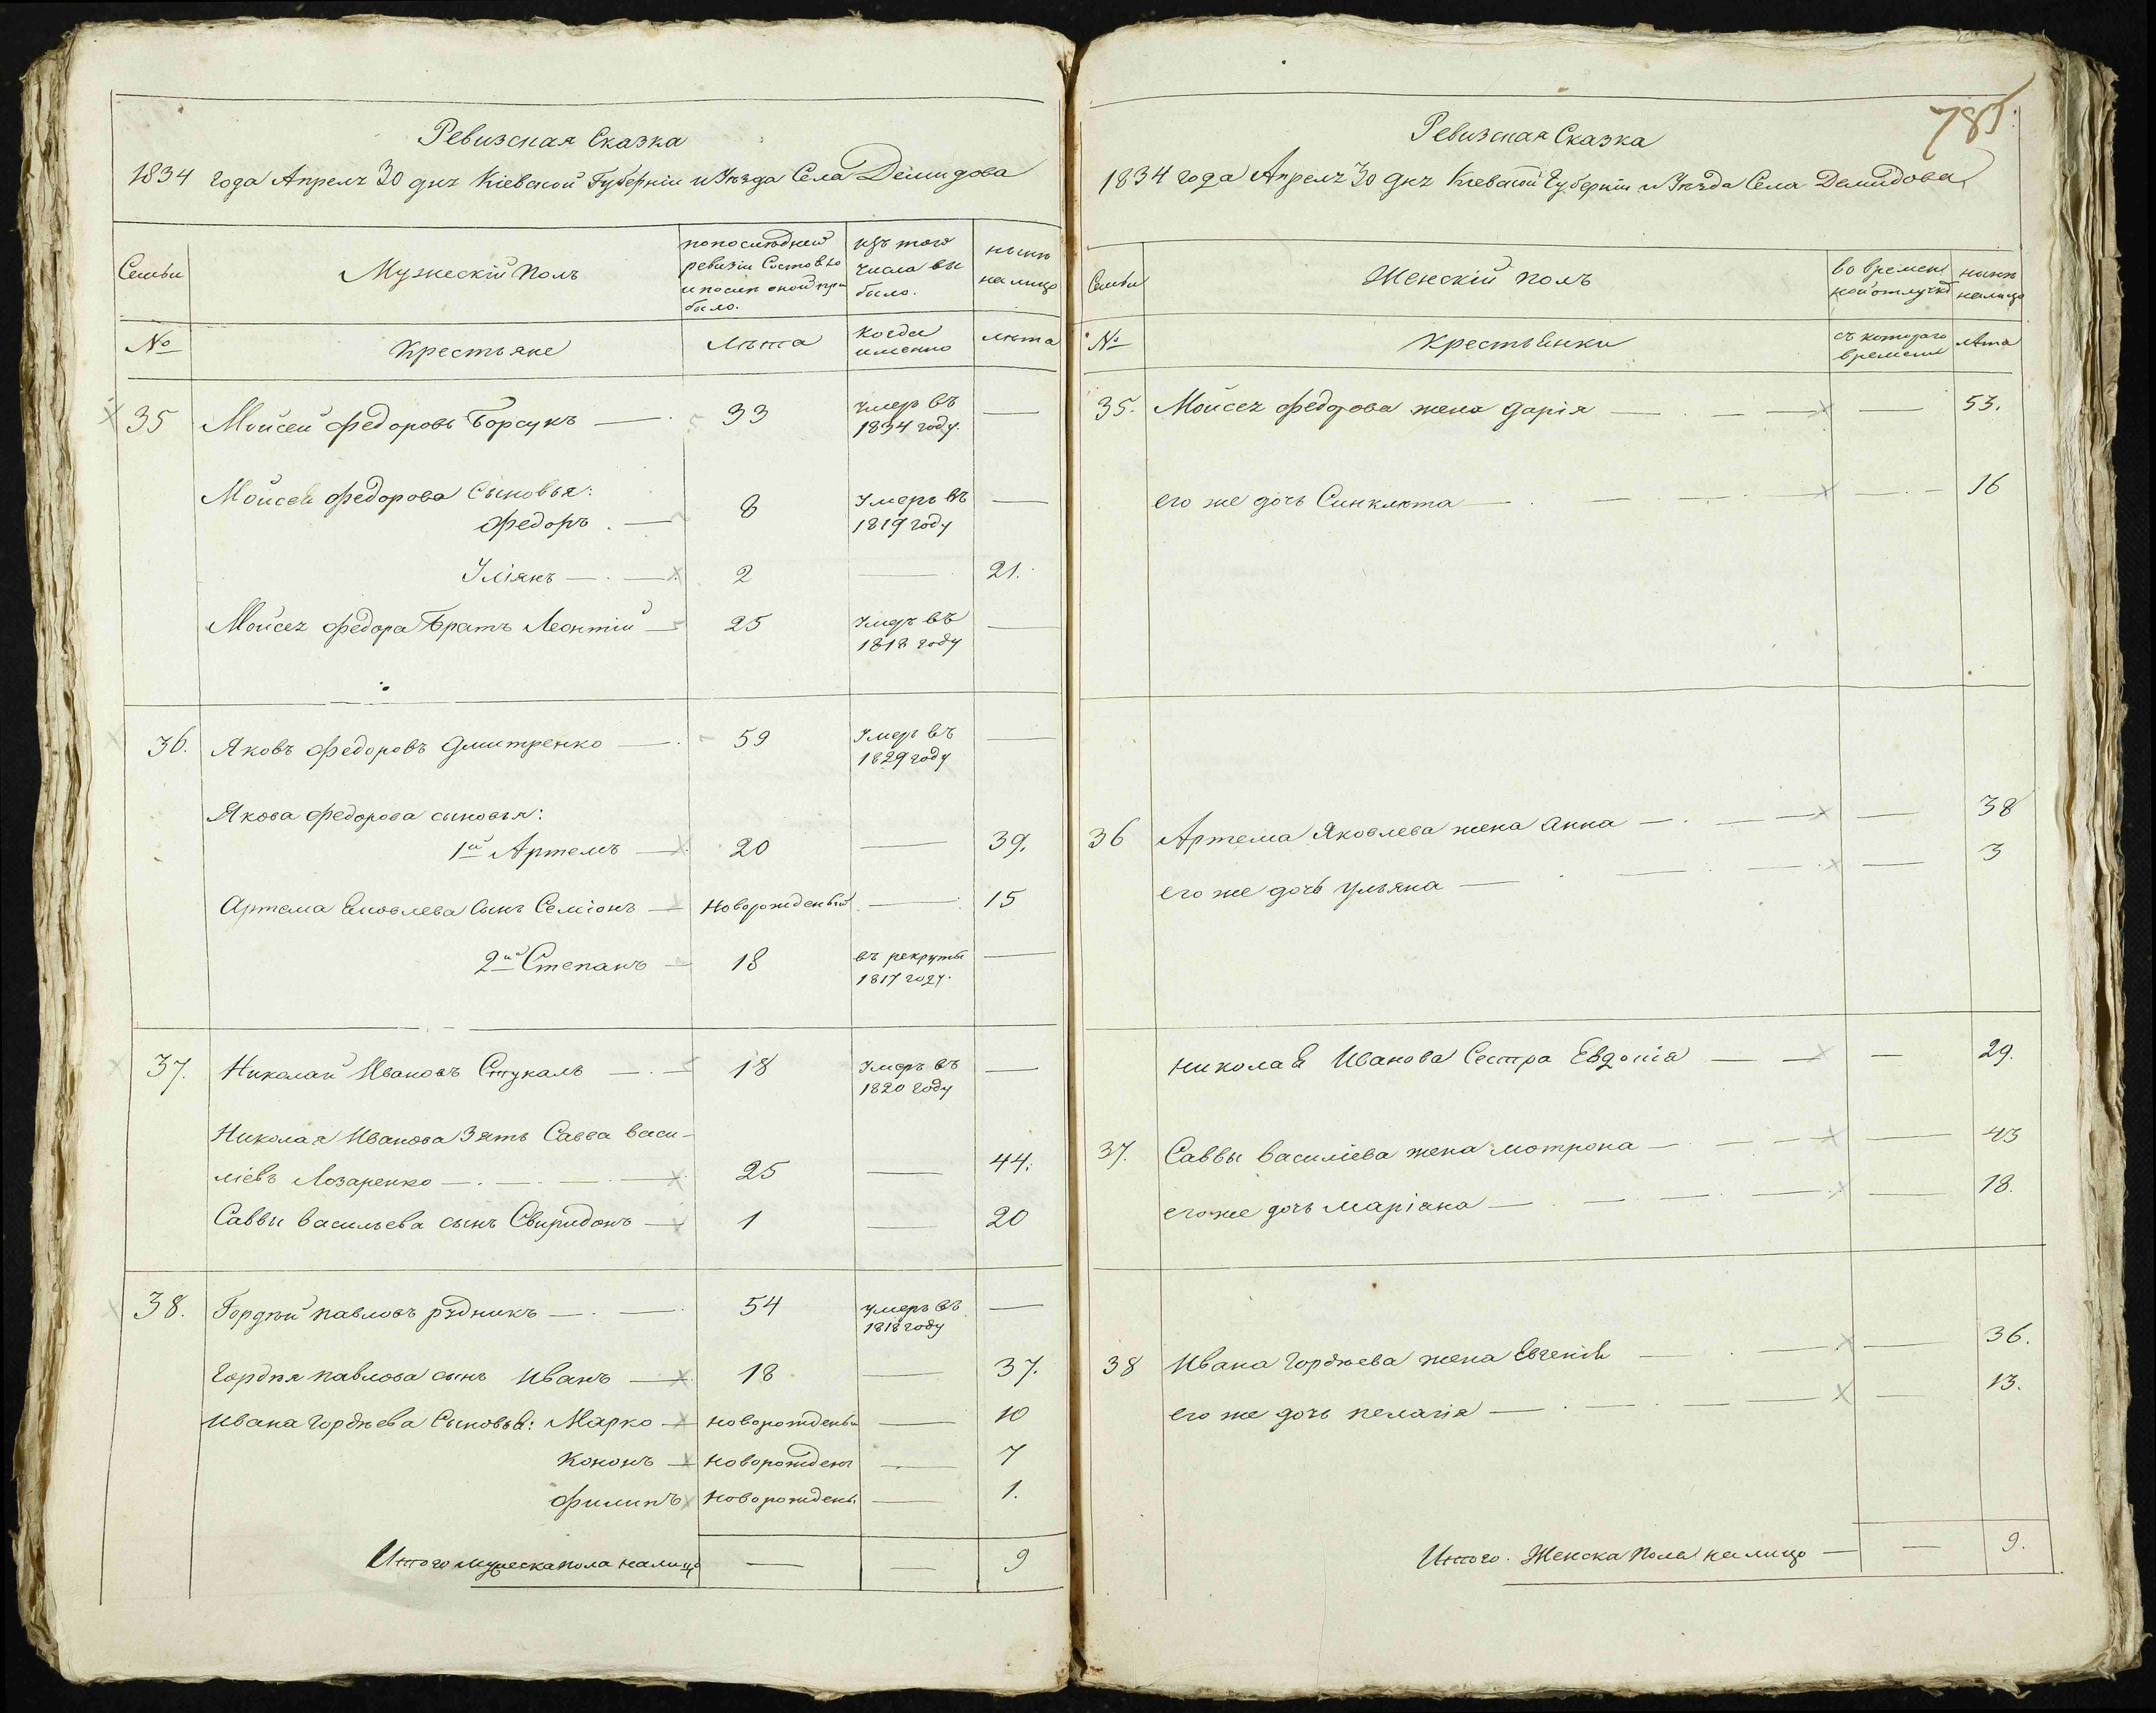 Ревизская Сказка
1834 года Апреля 30 дня Кіевской Губерніи и Уѣзда Села Демидова
Семьи
Мужескій Полъ
по последней ревизіи Состояло и после оной прибыло.
изъ того числа выбыло.
нынѣ на лицо
№
Крестьяне
Лѣта
Когда именно
лѣта
35 Мойсей Федоровъ Борсукъ — 33 умер въ 1834 году. —
Мойсея Федорова Сыновья:
Федоръ — 8 Умеръ въ 1819 году —
Уліянъ — 2 — 21.
Мойсея Федора Братъ Леонтій — 25 Умеръ въ 1818 году —
36. Яковъ Федоровъ Дмитренко — 59 Умеръ въ 1829 году —
Якова Федорова сыновья:
1й Артемъ — 20 — 39.
Артема Яковлева Сынъ Семіонъ — Новорожденый — 15
2й Степанъ — 18 въ рекруты 1817 году. —
37. Николай Ивановъ Стукалъ — 18 Умеръ въ 1820 году —
Николая Иванова Зять Савва Васи-
ліевъ Лозаренко — 25 — 44.
Саввы Васильева сынъ Свиридонъ — 1 — 20
38. Гордѣй Павловъ рудникъ — 54 умеръ въ 1818 году —
Гордѣя павлова сынъ Иванъ — 18 — 37.
Ивана Гордѣева Сыновья: Марко — новорожденый — 10
Кононъ — новорожден — 7
Филипъ новорожден — 1.
Итого мужеска пола налицо — — 9
785
Ревизская Сказка
1834 года Апреля 30 дня Кіевской Губерніи и Уѣзда Села Демидова
Семьи
Женскій Полъ
во временной отлучкѣ
нынѣ налицо
№
Крестьянки
съ котораго времени
лѣта
35. Мойсея Федорова жена Дарія — — 53.
его же дочь Синклѣта — — 16
36 Артема Яковлева жена Анна — — 38
его же дочь Ульяна — — 3
Николая Иванова Сестра Евдокія — — 29.
37. Саввы Василіева жена мотрона — — 43
его же дочь Маріана — — 18.
38 Ивана Гордѣева жена Евгенія — — 36.
его же дочь пелагія — — 13.
Итого Женска Пола на лицо — — 9.